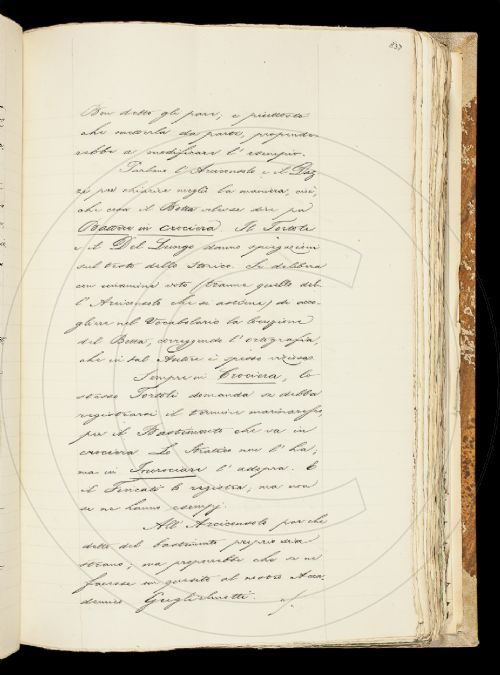 837
Ben detto gli pare, e piuttosto
che metterla da parte, propende-
rebbe a modificare l'esempio.
Parlano l'Arciconsolo e il Daz-
zi per chiarire meglio la maniera, visto
che cosa il Betta volesse dire per
Battere in crociera. Il Tortoli
e il Del Lungo danno spiegazioni
sul testo dello Storico. Si delibera
con unanime voto (tranne quello del-
l'Arciconsolo che si astiene) di acco-
gliere nel Vocabolario la lezione
del Betta, correggendo l'ortografia,
che in tal Autore è spesso viziosa.
Sempre in Crociera, lo
stesso Tortoli domanda se debba
registrarsi il termine marinaresco,
per il Bastimento che va in
crociera. Lo Stratico non l'ha,
ma in Incrociare l'adopra. E
il Fincati lo registra, ma non
se ne hanno esempj.
All'Arciconsolo par che
detto del bastimento proprio sia
strano; ma proporrebbe che se ne
facesse un quesito al nostro Acca-
demico Guglielmotti.